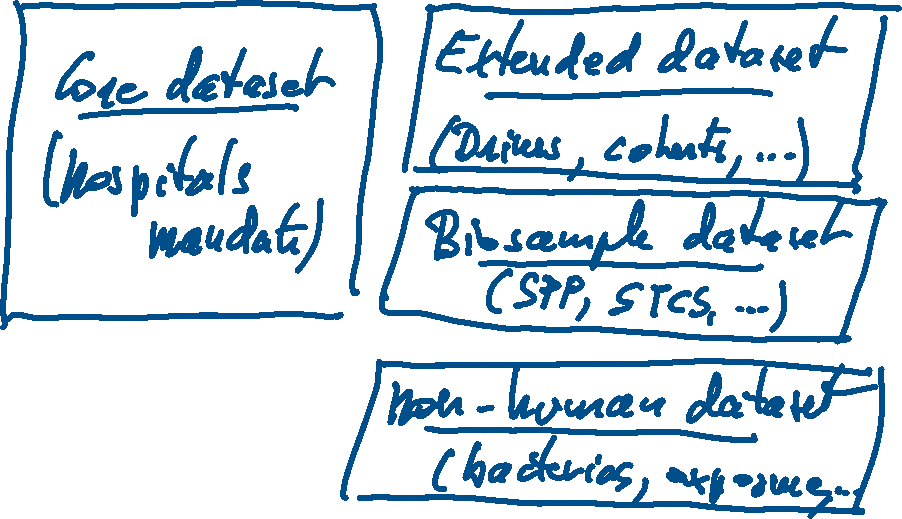 Core dataset
(hospitals
mandate)
Extended dataset
(Drivers, cohorts, ...)
Biosample dataset
(SPP, STCS, ...)
non-human dataset
(bacterias, exposome, ...